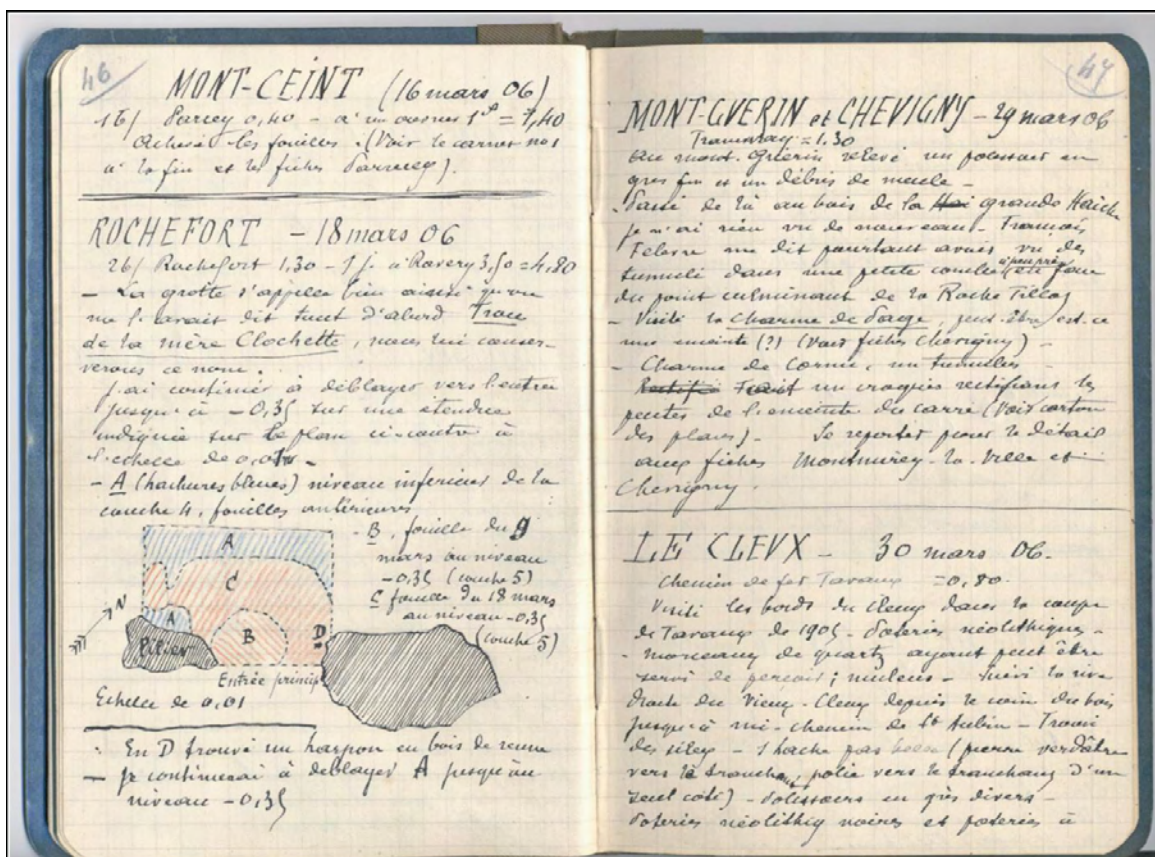 46
MONT-CEINT (16 mars 06)
Parcey 0,40 - à un 1f = 1,40
Achevé les fouilles. (Voir le carnet no 1
à la fin et les fiches Parcey).
ROCHEFORT - 18 mars 06
26/ Rochefort 1,30 - 1 j. à Ravery 3,50 = 4,80
- La grotte s'appelle bien ainsi qu'on
me l'avait dit tout d'abord Trou
de la mère Clochette, nous lui conser-
verons ce nom.
J'ai continué à déblayer vers l'entrée
jusqu'à -0,35 sur une étendue
indiquée sur le plan ci-contre à
l'échelle de 0,01
- A (hachures bleues) niveau inférieur de la
couche 4, fouilles antérieures
B, fouille du 9
mars au niveau
-0,35 (couche 5)
C fouille du 18 mars
au niveau -0,35
(couche 5)
A
C
N
A
B
D
Pilier
Entrée princip
Echelle de 0,01
En D trouvé un harpon en bois de renne
- Je continuerai à déblayer A jusqu'au
niveau -0,35
47
MONT-GUERIN et CHEVIGNY - 29 mars 06
Tramway = 1.30
Au mont-Guérin relevé un polissoir en
grès fin et un débris de meule -
- Passé de là au bois de la grande Haiche
je n'ai rien vu de nouveau - François
me dit pourtant avoir vu des
tumuli dans une petite à peu près en face
du point culminant de la Roche
- Visité la Charme de Page, peut-être est-ce
une enceinte (?) (Voir fiches Chevigny) -
- Charme de Corne, un tumulus -
Rectifié Trait un croquis rectifiant les
pentes de l'enceinte du carré (Voir carton
des plans) - Se reporter pour le détail
aux fiches Montmirey-la-Ville et
Chevigny.
LE CLEUX - 30 mars 06.
Chemin de fer Tavaux = 0,80.
Visité les bords du Cleux dans la coupe
de Tavaux de 1905 - Poteries néolithiques -
- Morceaux de quartz ayant peut être
servi de perçoir; nucleus - Suivi la rive
droite du Vieux-Cleux depuis le coin du bois
jusqu'à mi-chemin de St Aubin - Trouvé
des silex - 1 hache pas (pierre verdâtre
vers le tranchant, polie vers le tranchant d'un
seul côté) - Polissoirs en grès divers -
Poteries néolithiq noires et poteries à